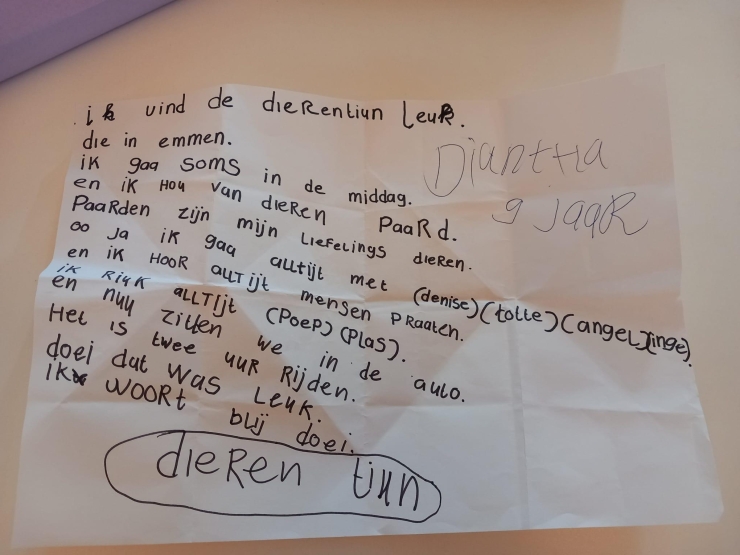 ik vind de dierentiun leuk.
die in emmen.
ik gaa soms in de middag.
en ik hou van dieren paard.
Paarden zijn mijn liefelings dieren.
oo ja ik gaa alltijt met (denise)(lotte)(angel)(inge).
en ik hoor alltijt mensen praaten.
ik riuk alltijt (poep)(plas).
en nuu zitten we in de auto.
Het is twee uur rijden.
doei dat was leuk.
ik woort blij doei.
dieren tiun
Diantha
9 jaar